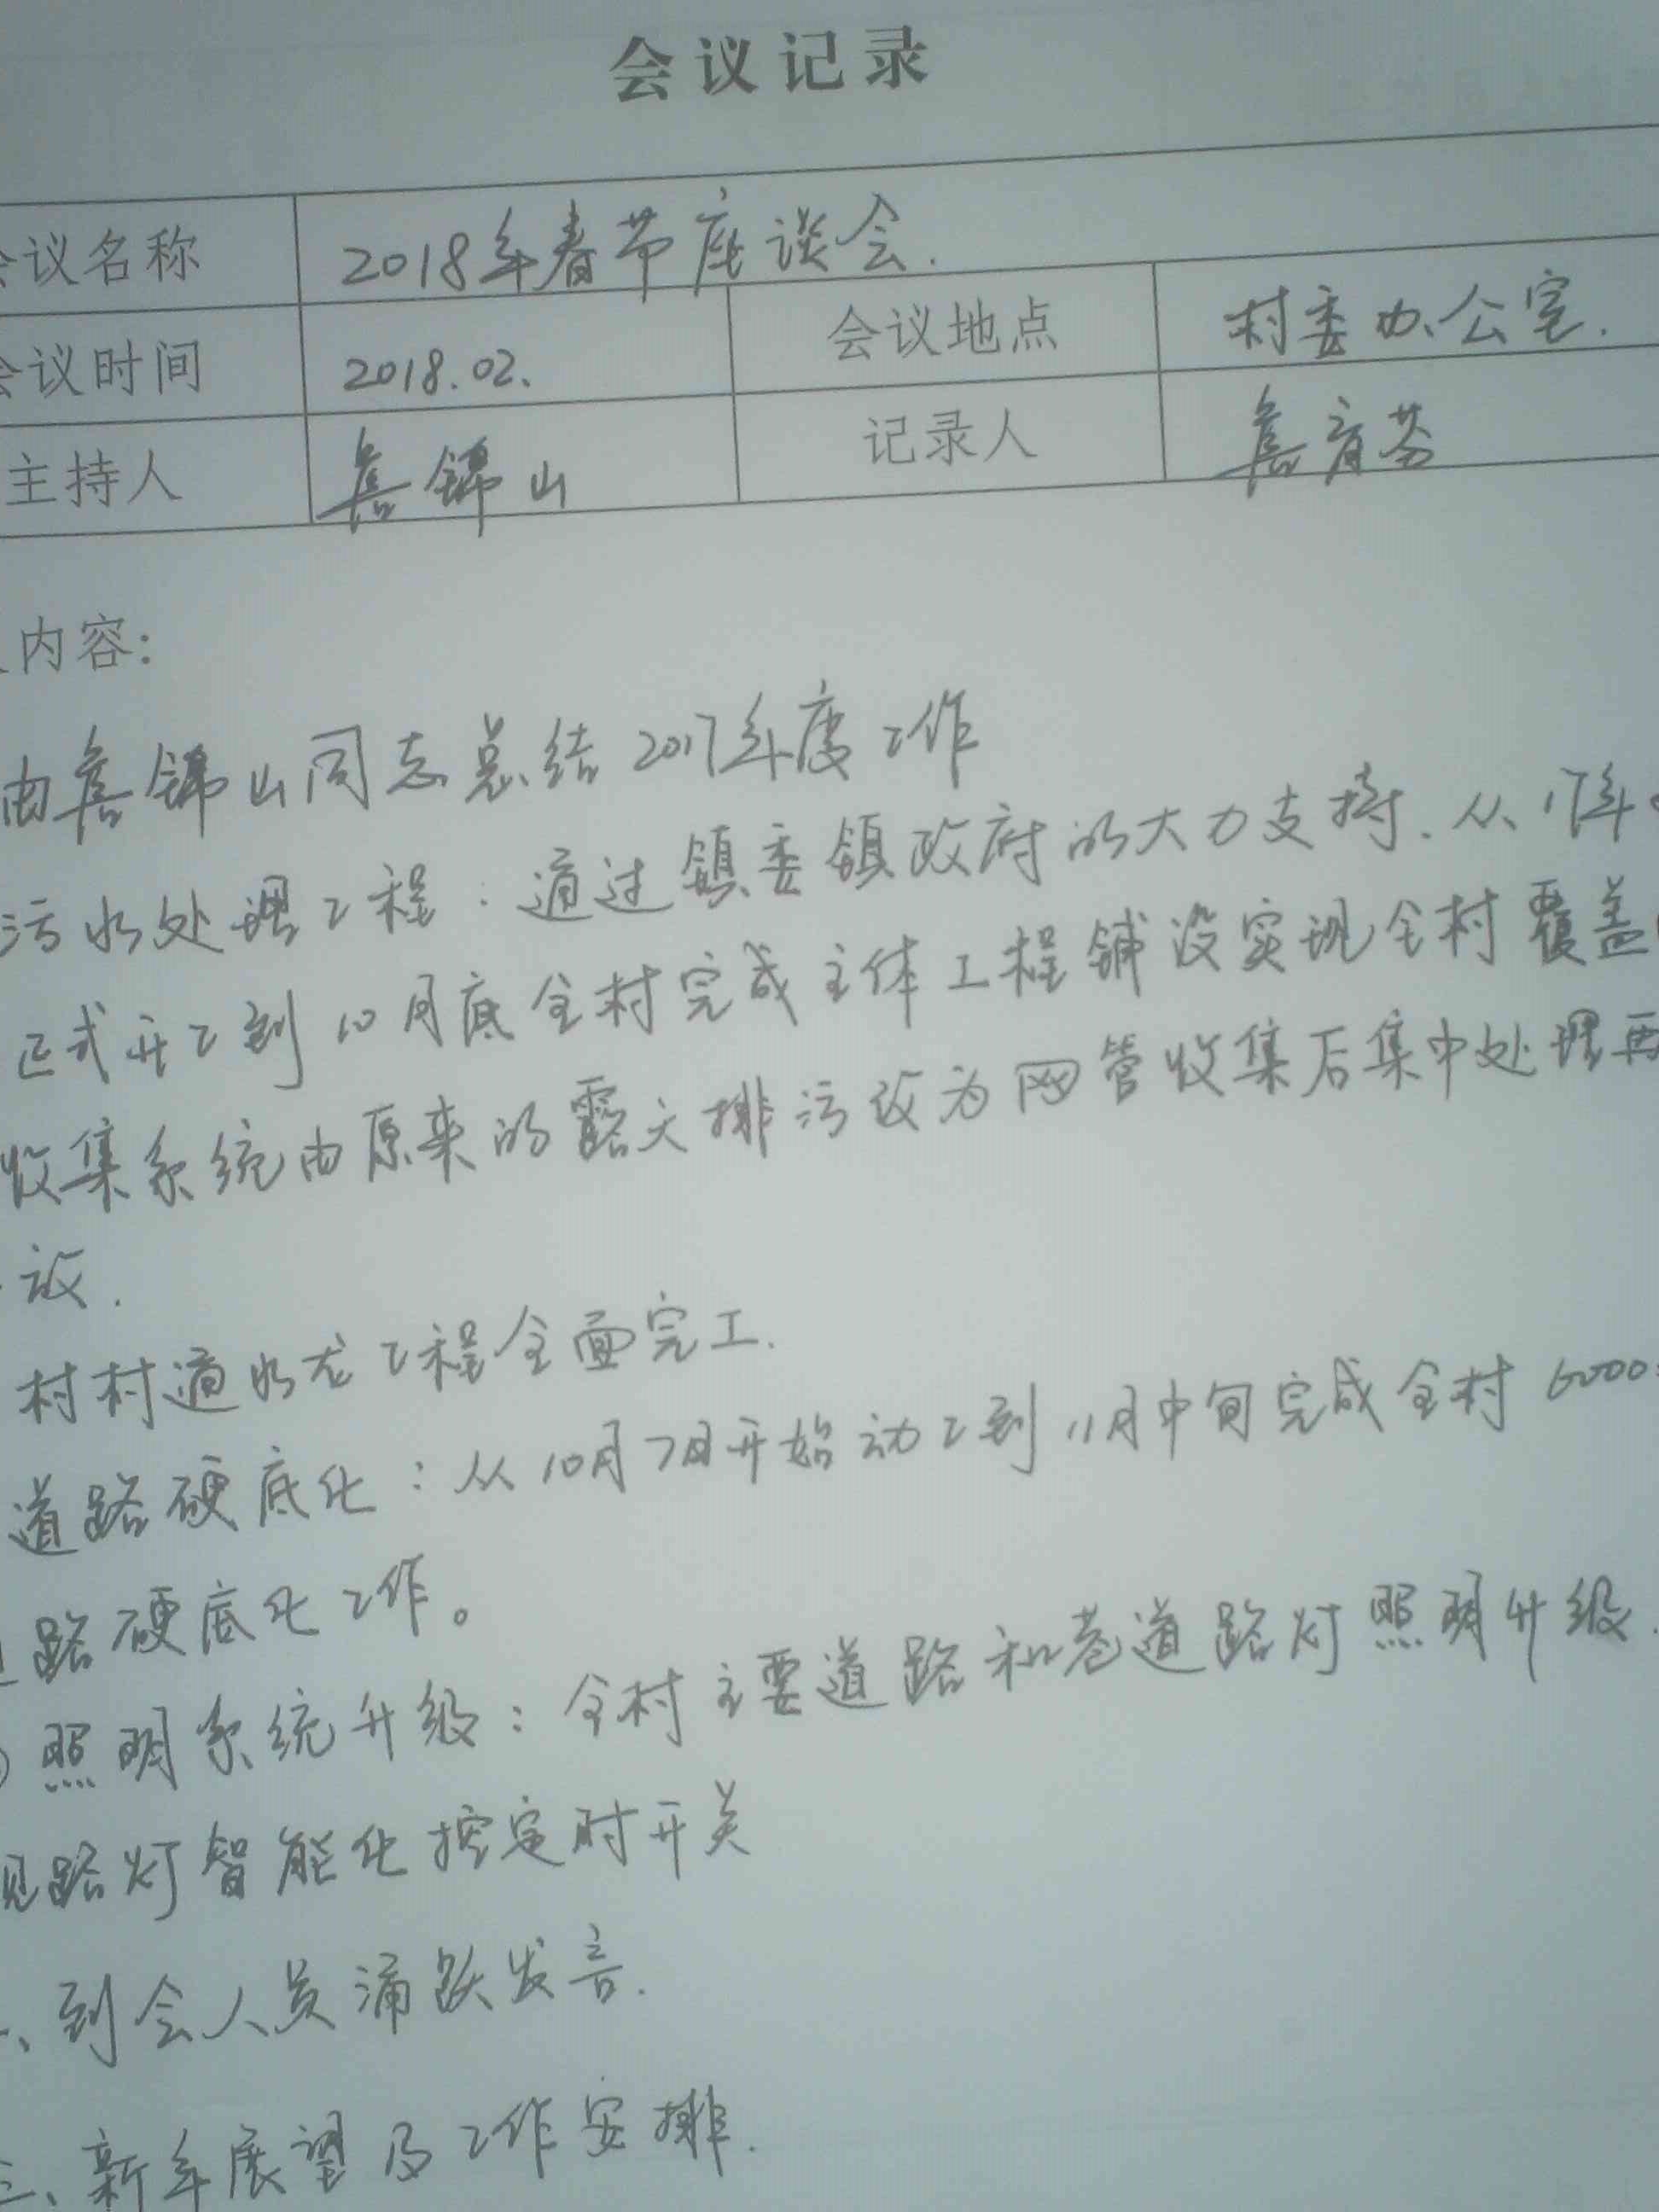 会议记录
会议名称 2018年春节座谈会.
会议时间 2018.02. 会议地点 村委办公室.
主持人 锦山 记录人
内容:
由 锦山同志总结2017年度工作
污水处理工程:通过镇委镇政府的大力支持.从17年
正式开工到10月底全村完成主体工程铺设实现全村覆盖
收集系统由原来的露天排污改为网管收集后集中处理再
放.
村村通水龙工程全面完工.
道路硬底化:从10月7日开始动工到11月中旬完成全村6000
路硬底化工作。
照明系统升级:全村主要道路和巷道路灯照明升级.
现路灯智能化控定时开关
、到会人员涌跃发言.
三、新年展望及工作安排.